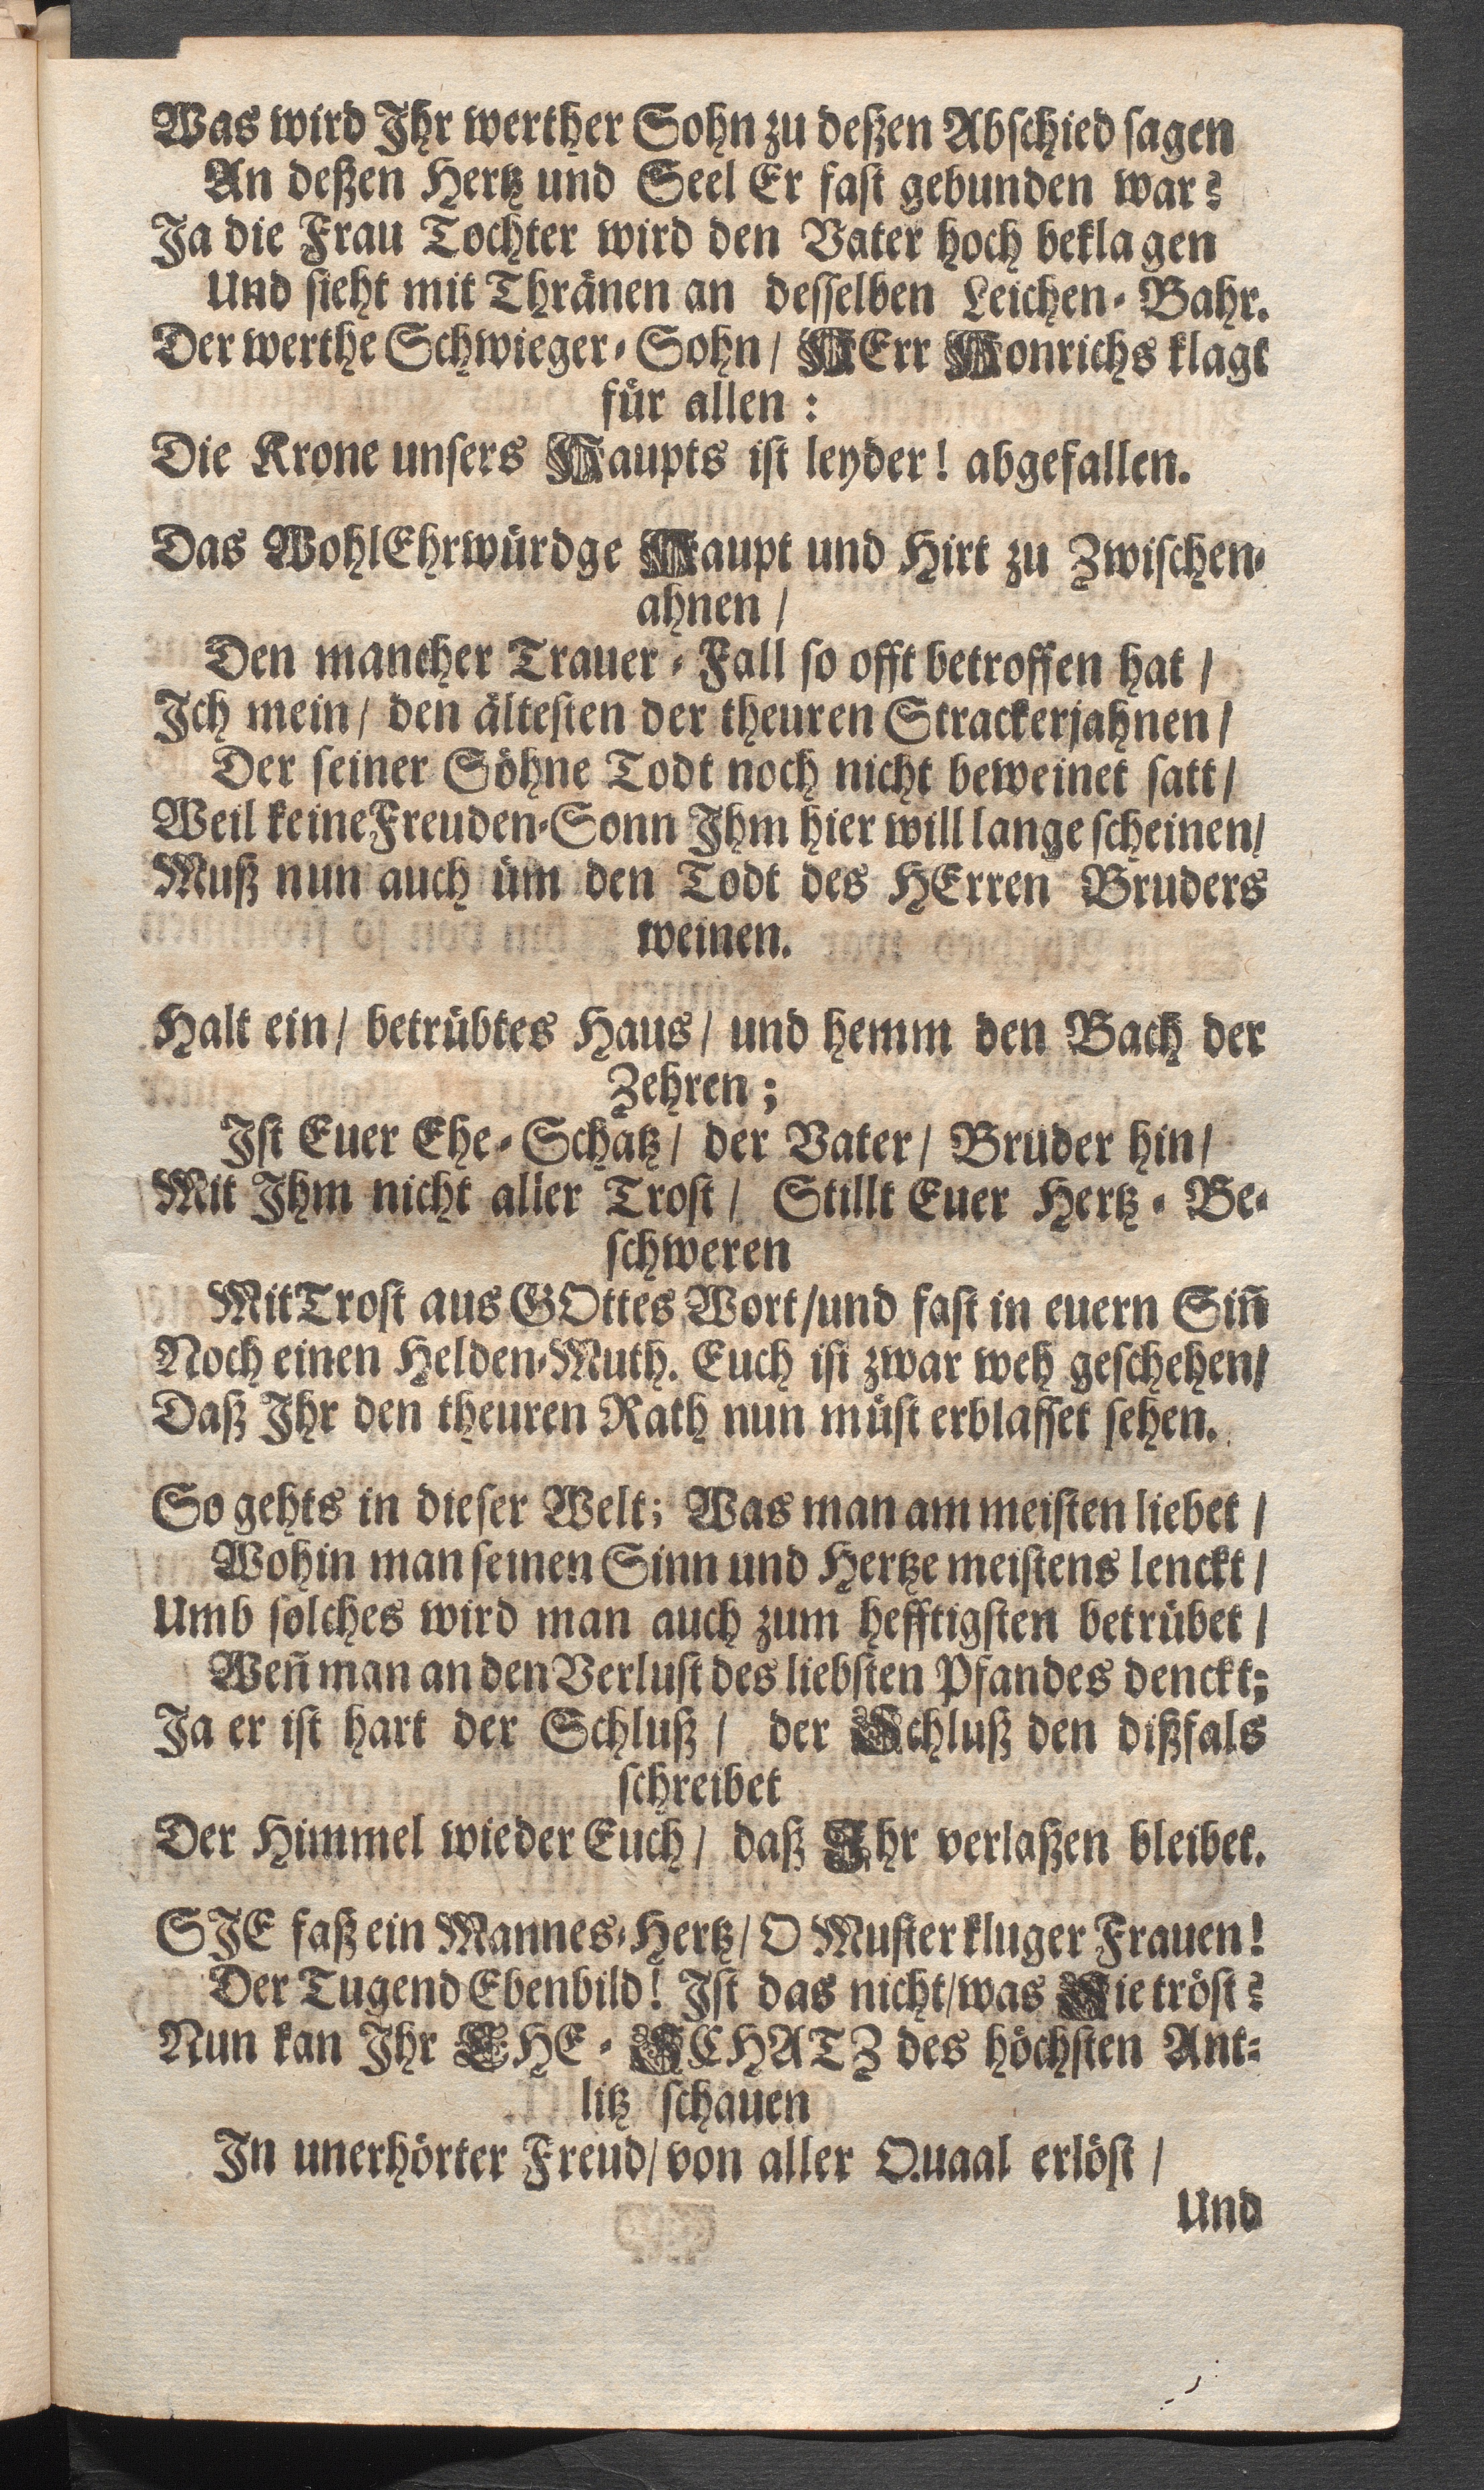 Was wird Ihr werther Sohn zu deßen Abschied sagen
An deßen Hertz und Seel Er fast gebunden war?
Ja die Frau Tochter wird den Vater hoch beklagen
Und sieht mit Thränen an desselben Leichen-Bahr.
Der werthe Schwieger-Sohn/ HErr Honrichs klagt
für allen:
Die Krone unsers Haupts ist leyder! abgefallen.
Das WohlEhrwürdge Haupt und Hirt zu Zwischen-
ahnen/
Den mancher Trauer-Fall so offt betroffen hat/
Ich mein/ den ältesten der theuren Strackerjahnen/
Der seiner Söhne Todt noch nicht beweinet satt/
Weil keine Freuden-Sonn Ihm hier will lange scheinen/
Muß nun auch üm den Todt des HErren Bruders
weinen.
Halt ein/ betrübtes Haus/ und hemm den Bach der
Zehren;
Ist Euer Ehe-Schatz/ der Vater/ Bruder hin/
Mit Ihm nicht aller Trost/ Stillt Euer Hertz-Be-
schweren
Mit Trost aus GOttes Wort/und fast in euern Siñ
Noch einen Helden-Muth. Euch ist zwar weh geschehen/
Daß Ihr den theuren Rath nun müst erblasset sehen.
So gehts in dieser Welt; Was man am meisten liebet/
Wohin man seinen Sinn und Hertze meistens lenckt/
Umb solches wird man auch zum hefftigsten betrübet/
Weñ man an den Verlust des liebsten Pfandes denckt;
Ja er ist hart der Schluß/ der Schluß den dißfals
schreibet
Der Himmel wieder Euch/ daß Ihr verlaßen bleibet.
SIE faß ein Mannes-Hertz/ O Muster kluger Frauen!
Der Tugend Ebenbild! Ist das nicht/was Sie tröst?
Nun kan Ihr EHE-SCHATZ des höchsten Ant-
litz schauen
In unerhörter Freud/von aller Quaal erlöst/
Und